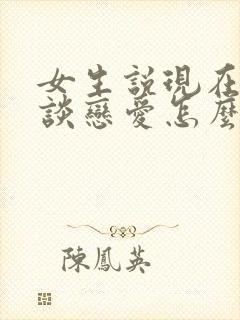 女生説現在
談戀愛怎麼
陳鳳英